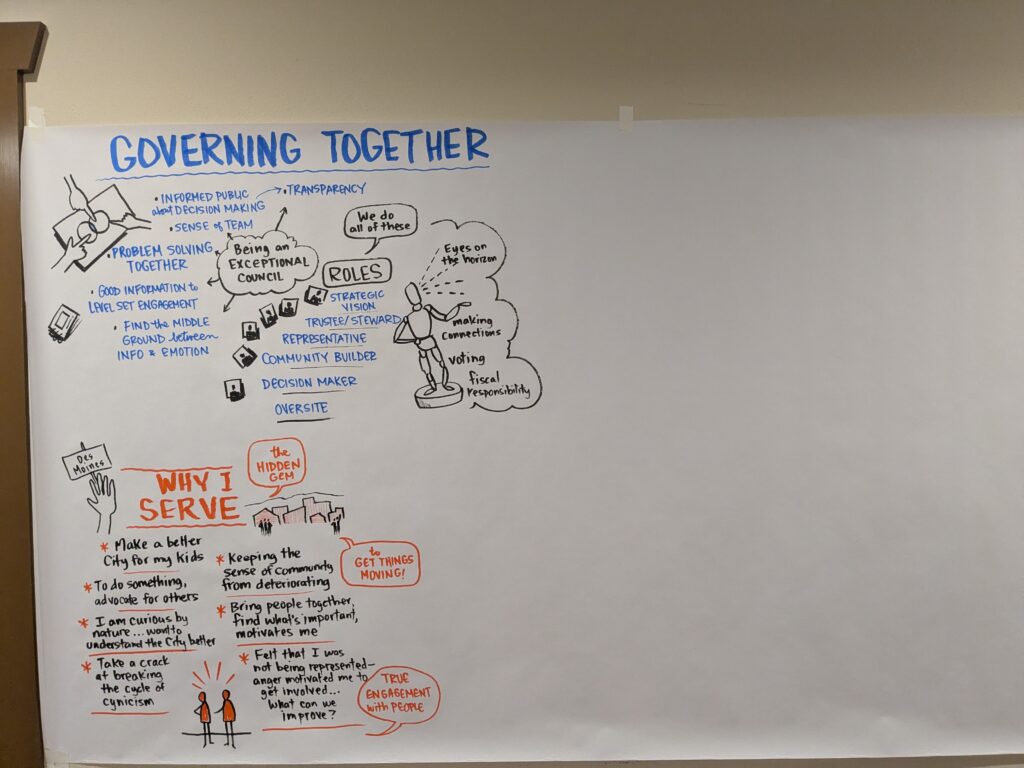 GOVERNING TOGETHER
• INFORMED PUBLIC
about DECISION MAKING
• TRANSPARENCY
• SENSE of TEAM
• PROBLEM SOLVING
TOGETHER
• GOOD INFORMATION to
LEVEL SET ENGAGEMENT
• FIND the MIDDLE
GROUND between
INFO & EMOTION
Being an
EXCEPTIONAL
COUNCIL
We do
all of these
ROLES
STRATEGIC
VISION
TRUSTEE/STEWARD
REPRESENTATIVE
COMMUNITY BUILDER
DECISION MAKER
OVERSITE
Eyes on
the horizon
making
connections
voting
fiscal
responsibility
Des
Moines
WHY I
SERVE
the
HIDDEN
GEM
to
GET THINGS
MOVING!
* Make a better
City for my kids
* To do something,
advocate for others
* I am curious by
nature... want to
understand the City better
* Take a crack
at breaking
the cycle of
cynicism
* Keeping the
sense of community
from deteriorating
* Bring people together,
find what's important,
motivates me
* Felt that I was
not being represented—
anger motivated me to
get involved...
what can we
improve?
TRUE
ENGAGEMENT
with PEOPLE